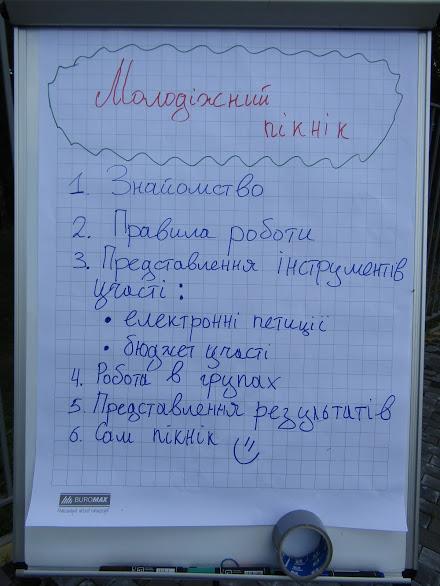 Молодіжний
пікнік
1. Знайомство
2. Правила роботи
3. Представлення інструментів
участі :
• електронні петиції
• бюджет участі
4. Робота в групах
5. Представлення результатів
6. Сам пікнік
BUROMAX